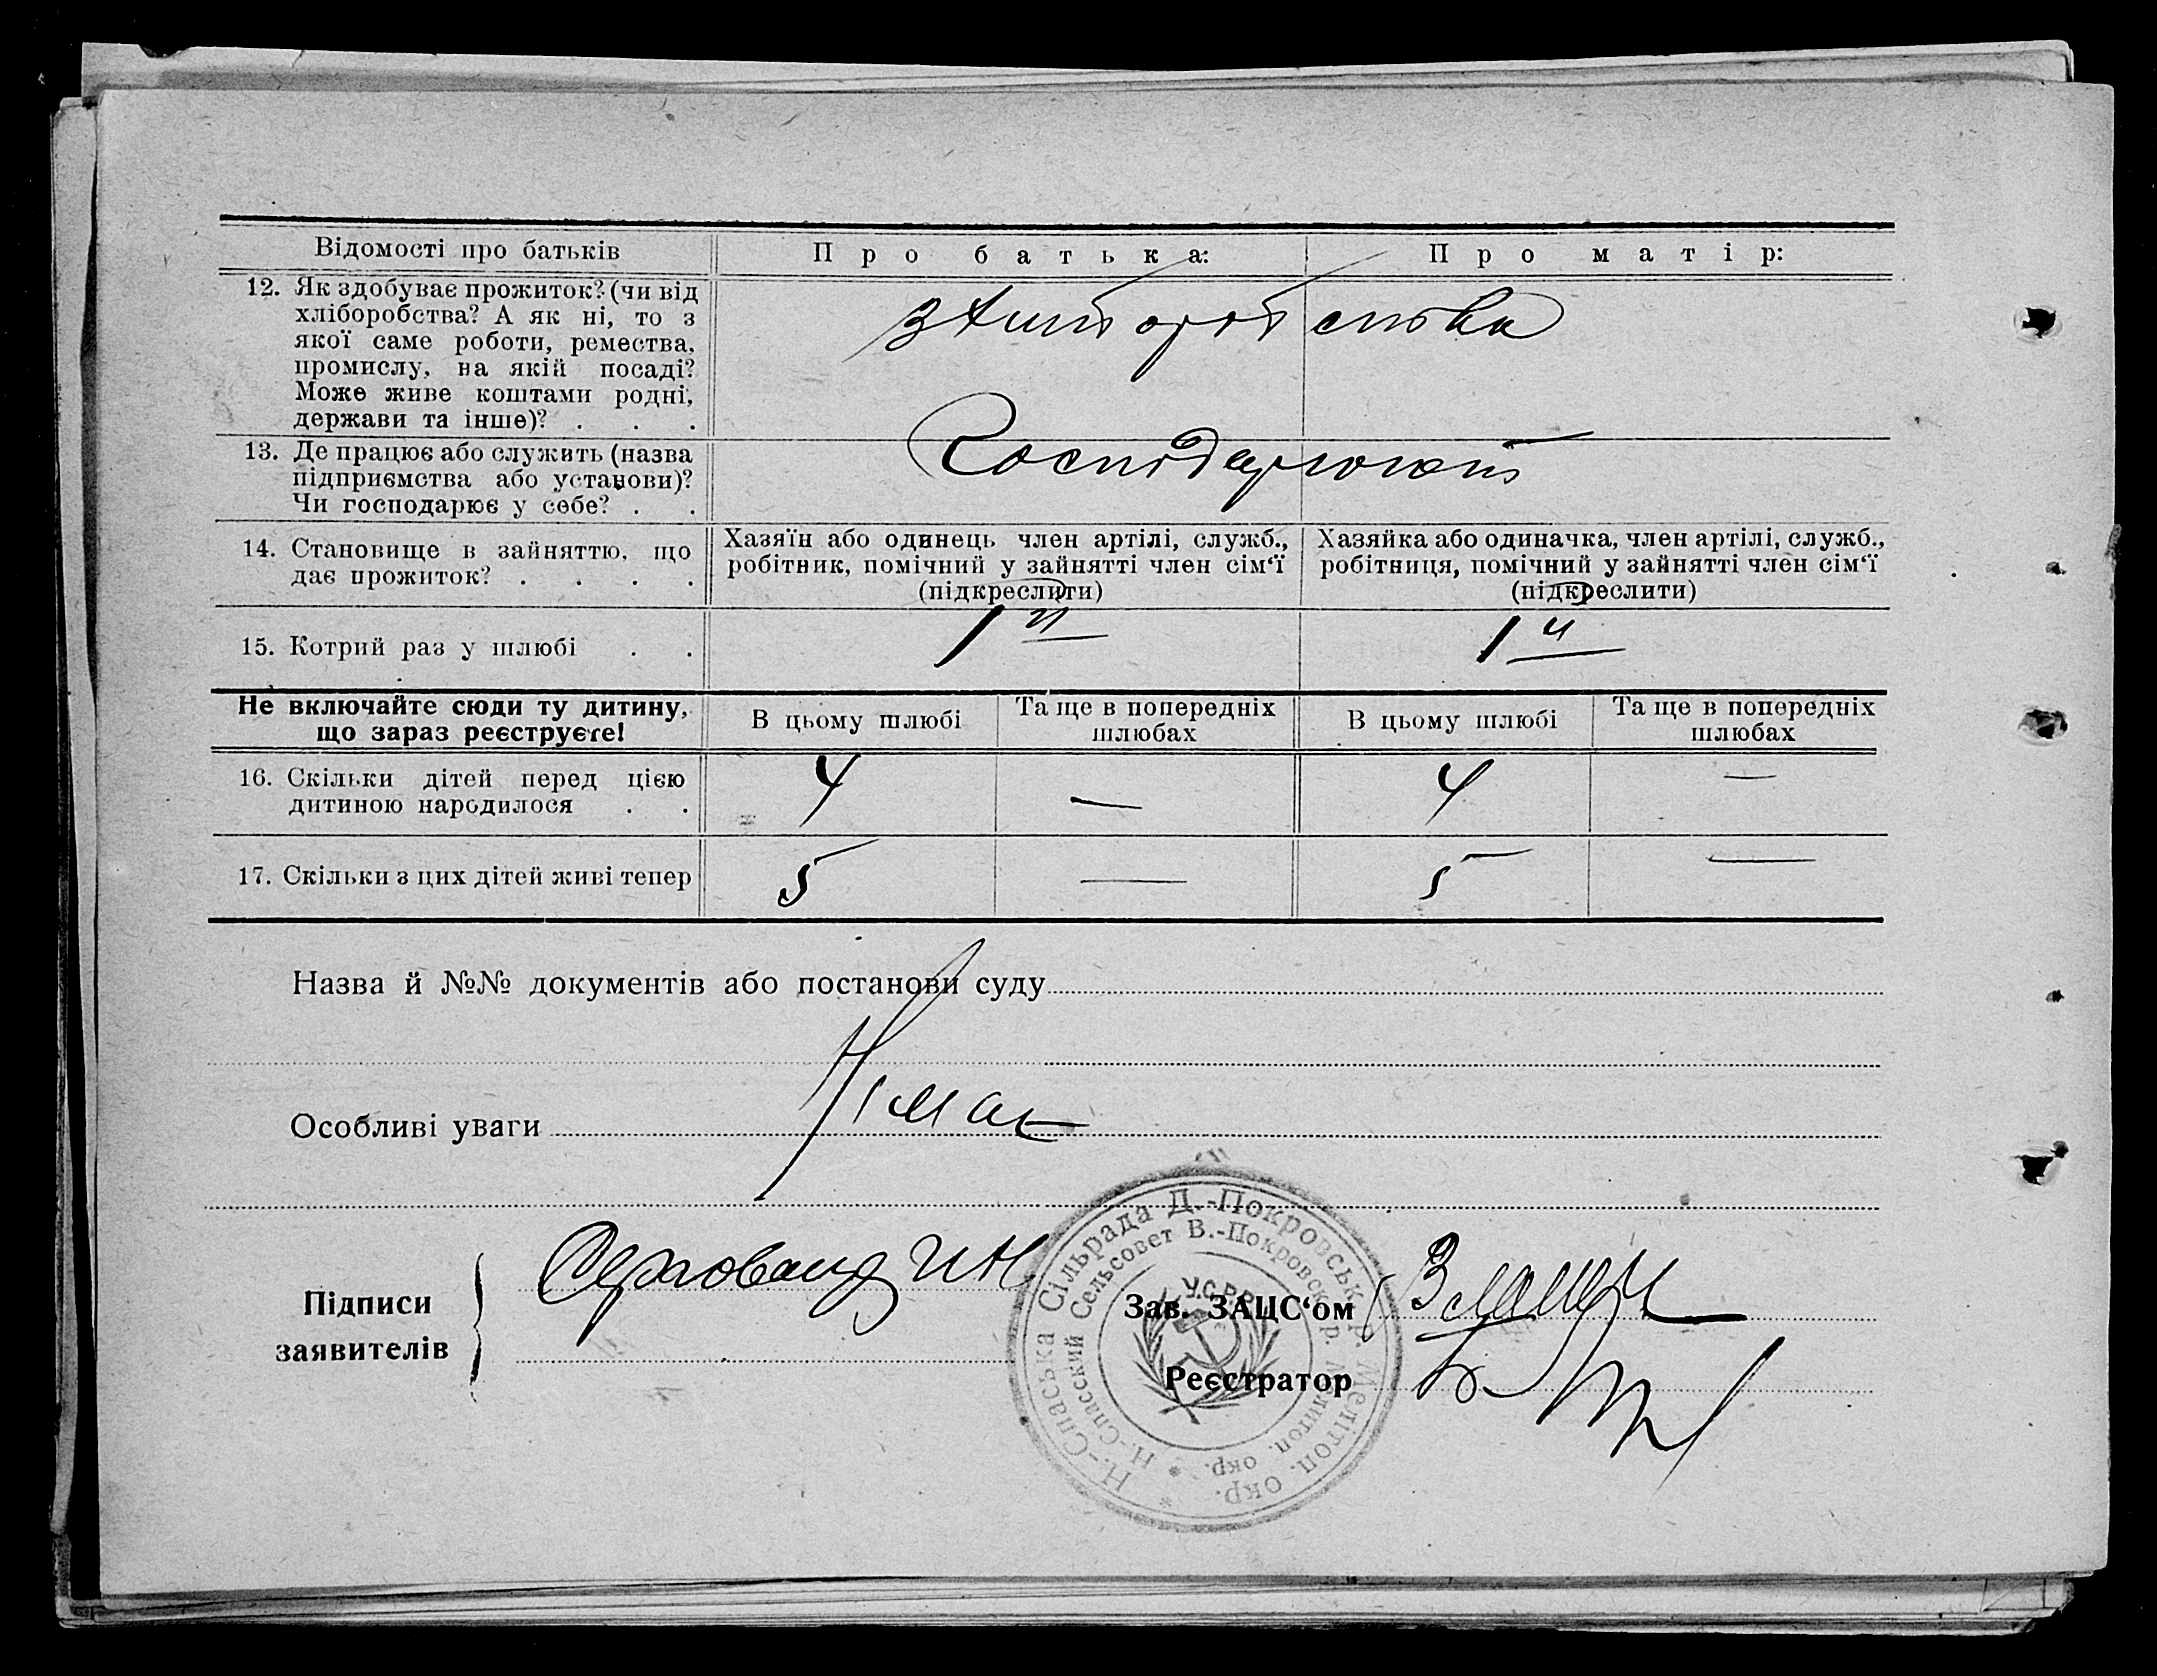 Відомості про батьків
Про батька:
Про матір:
12. Як здобуває прожиток? (чи від
хліборобства? А як ні, то з
якої саме роботи, ремества,
промислу, на якій посаді?
Може живе коштами родні,
держави та інше)? . . .
13. Де працює або служить (назва
підприємства або установи)?
Чи господарює у себе? . .
Господарюють
14. Становище в зайняттю, що
дає прожиток? . . . .
Хазяїн або одинець член артілі, служб.,
робітник, помічний у зайнятті член сім‘ї
(підкреслити)
Хазяйка або одиначка, член артілі, служб.,
робітниця, помічний у зайнятті член сім‘ї
(підкреслити)
15. Котрий раз у шлюбі . .
1й
1й
Не включайте сюди ту дитину,
що зараз реєструєте!
В цьому шлюбі
Та ще в попередніх
шлюбах
В цьому шлюбі
Та ще в попередніх
шлюбах
16. Скільки дітей перед цією
дитиною народилося . .
4
—
4
—
17. Скільки з цих дітей живі тепер
5
—
5
—
Назва й №№ документів або постанови суду
Особливі уваги
Німає
Підписи
заявителів
Зав. ЗАЦС‘ом
Реєстратор
Н.-Спаська Сільрада Д.-Покровськ. р. Мелітоп. окр.
Н.-Спасский Сельсовет В.-Покровск. р. Мелитоп. окр.
У.С.Р.Р.